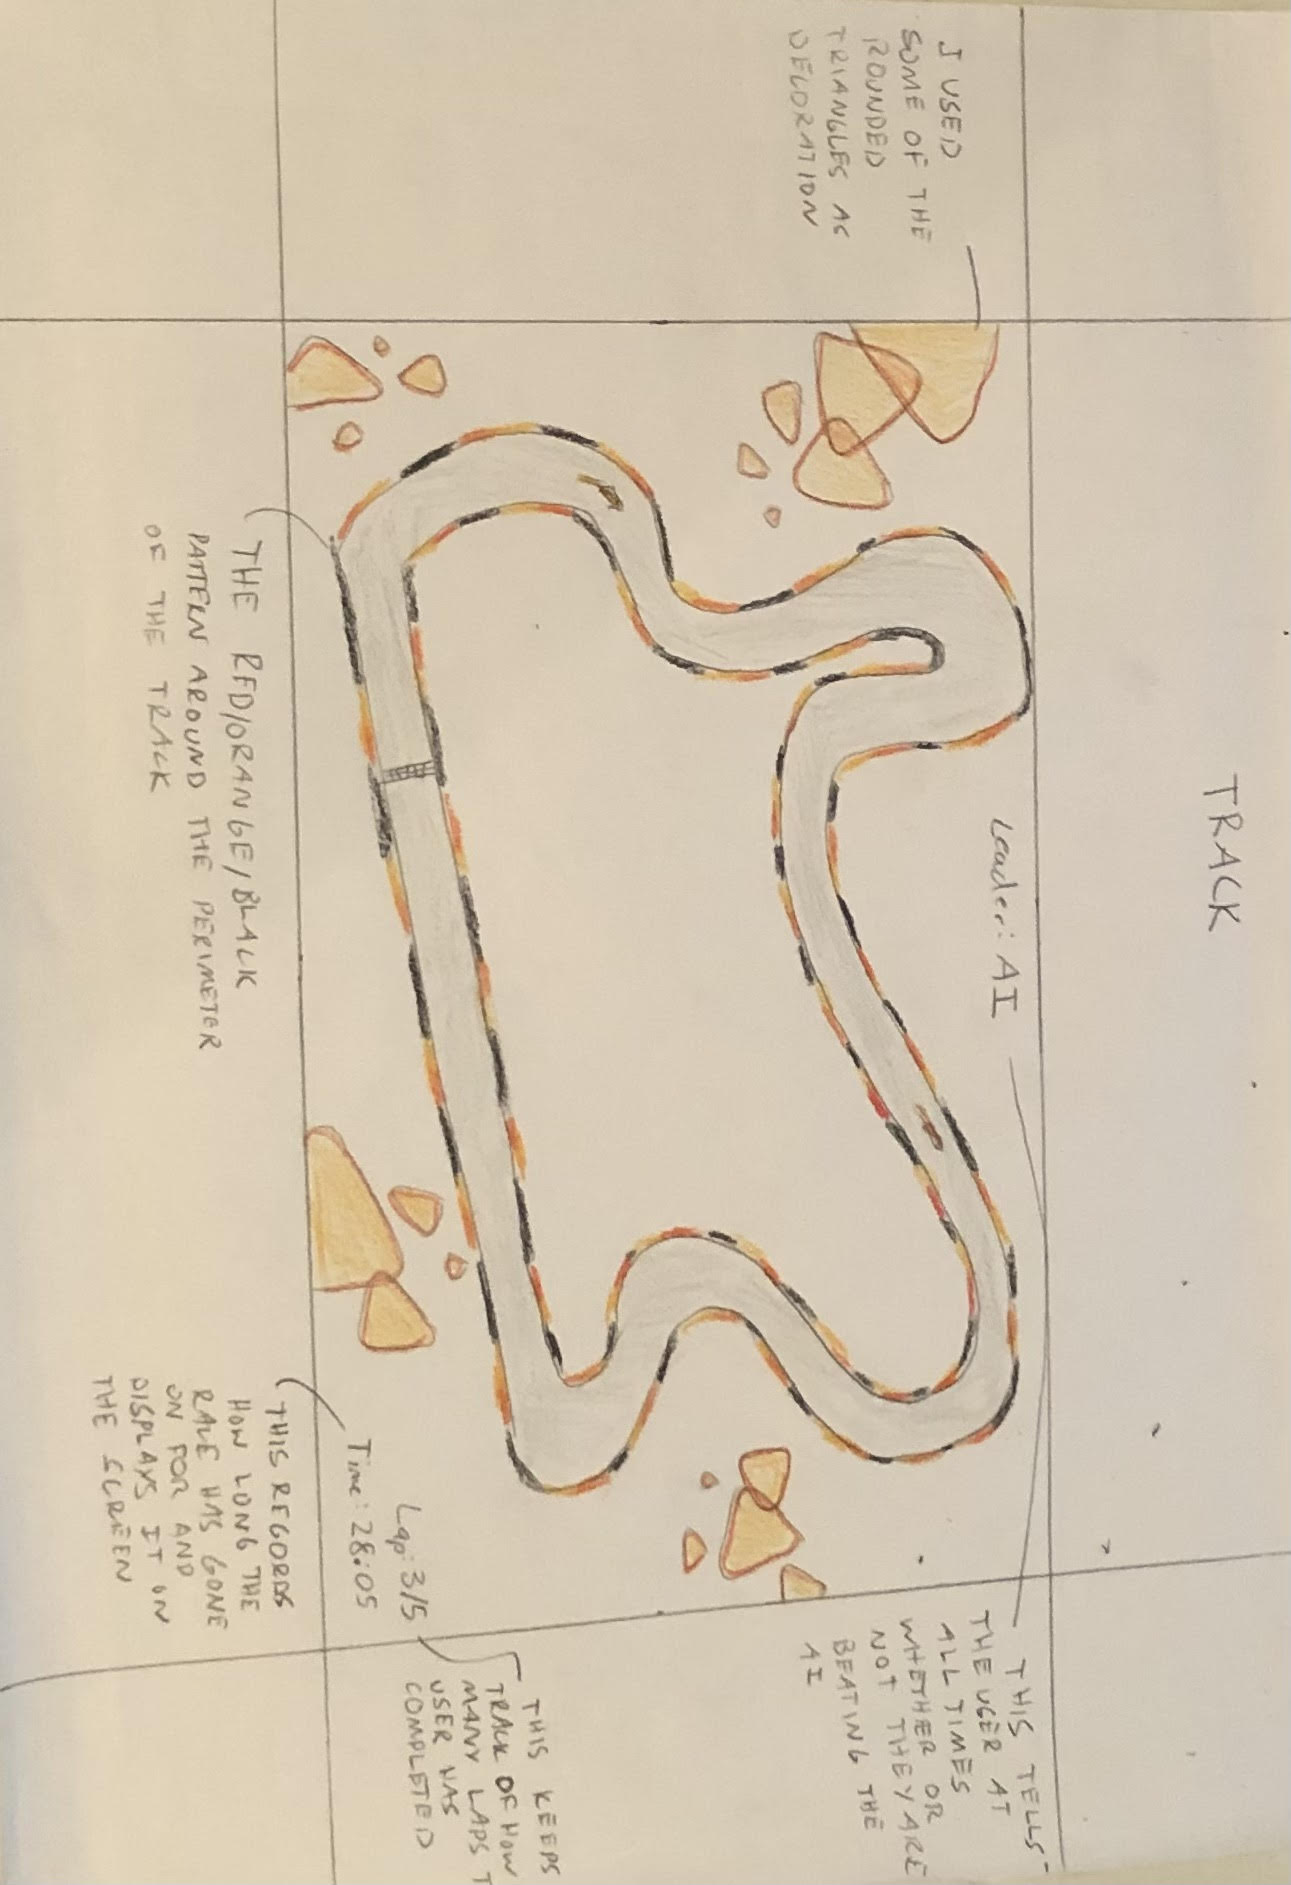 TRACK
Leader: AI
I USED
SOME OF THE
ROUNDED
TRIANGLES AS
DECORATION
THIS TELLS
THE USER AT
ALL TIMES
WHETHER OR
NOT THEY ARE
BEATING THE
AI
THIS KEEPS
TRACK OF HOW
MANY LAPS T
USER HAS
COMPLETED
Lap: 3/5
Time: 28:05
THE RED/ORANGE/BLACK
PATTERN AROUND THE PERIMETER
OF THE TRACK
THIS RECORDS
HOW LONG THE
RACE HAS GONE
ON FOR AND
DISPLAYS IT ON
THE SCREEN